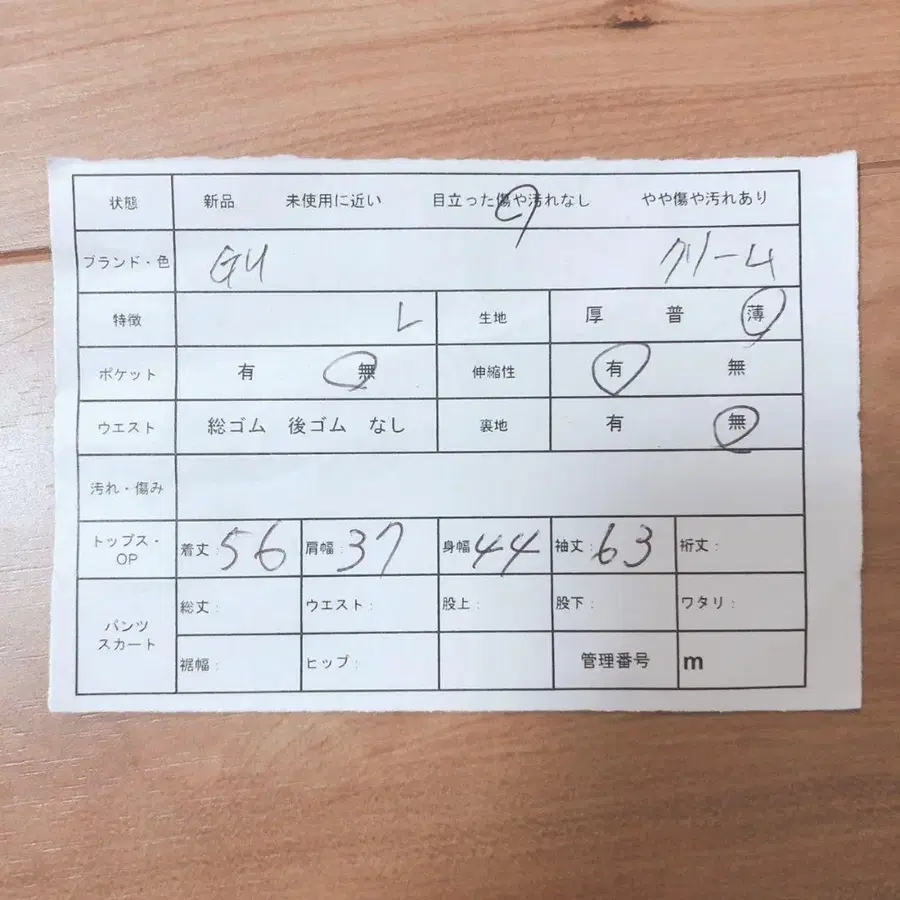 状態 新品 未使用に近い 目立った傷や汚れなし やや傷や汚れあり
ブランド・色 GU クリーム
特徴 L 生地 厚 普 薄
ポケット 有 無 伸縮性 有 無
ウエスト 総ゴム 後ゴム なし 裏地 有 無
汚れ・傷み
トップス・OP 着丈:56 肩幅:37 身幅:44 袖丈:63 裄丈:
パンツ スカート 総丈: ウエスト: 股上: 股下: ワタリ:
裾幅: ヒップ: 管理番号 m